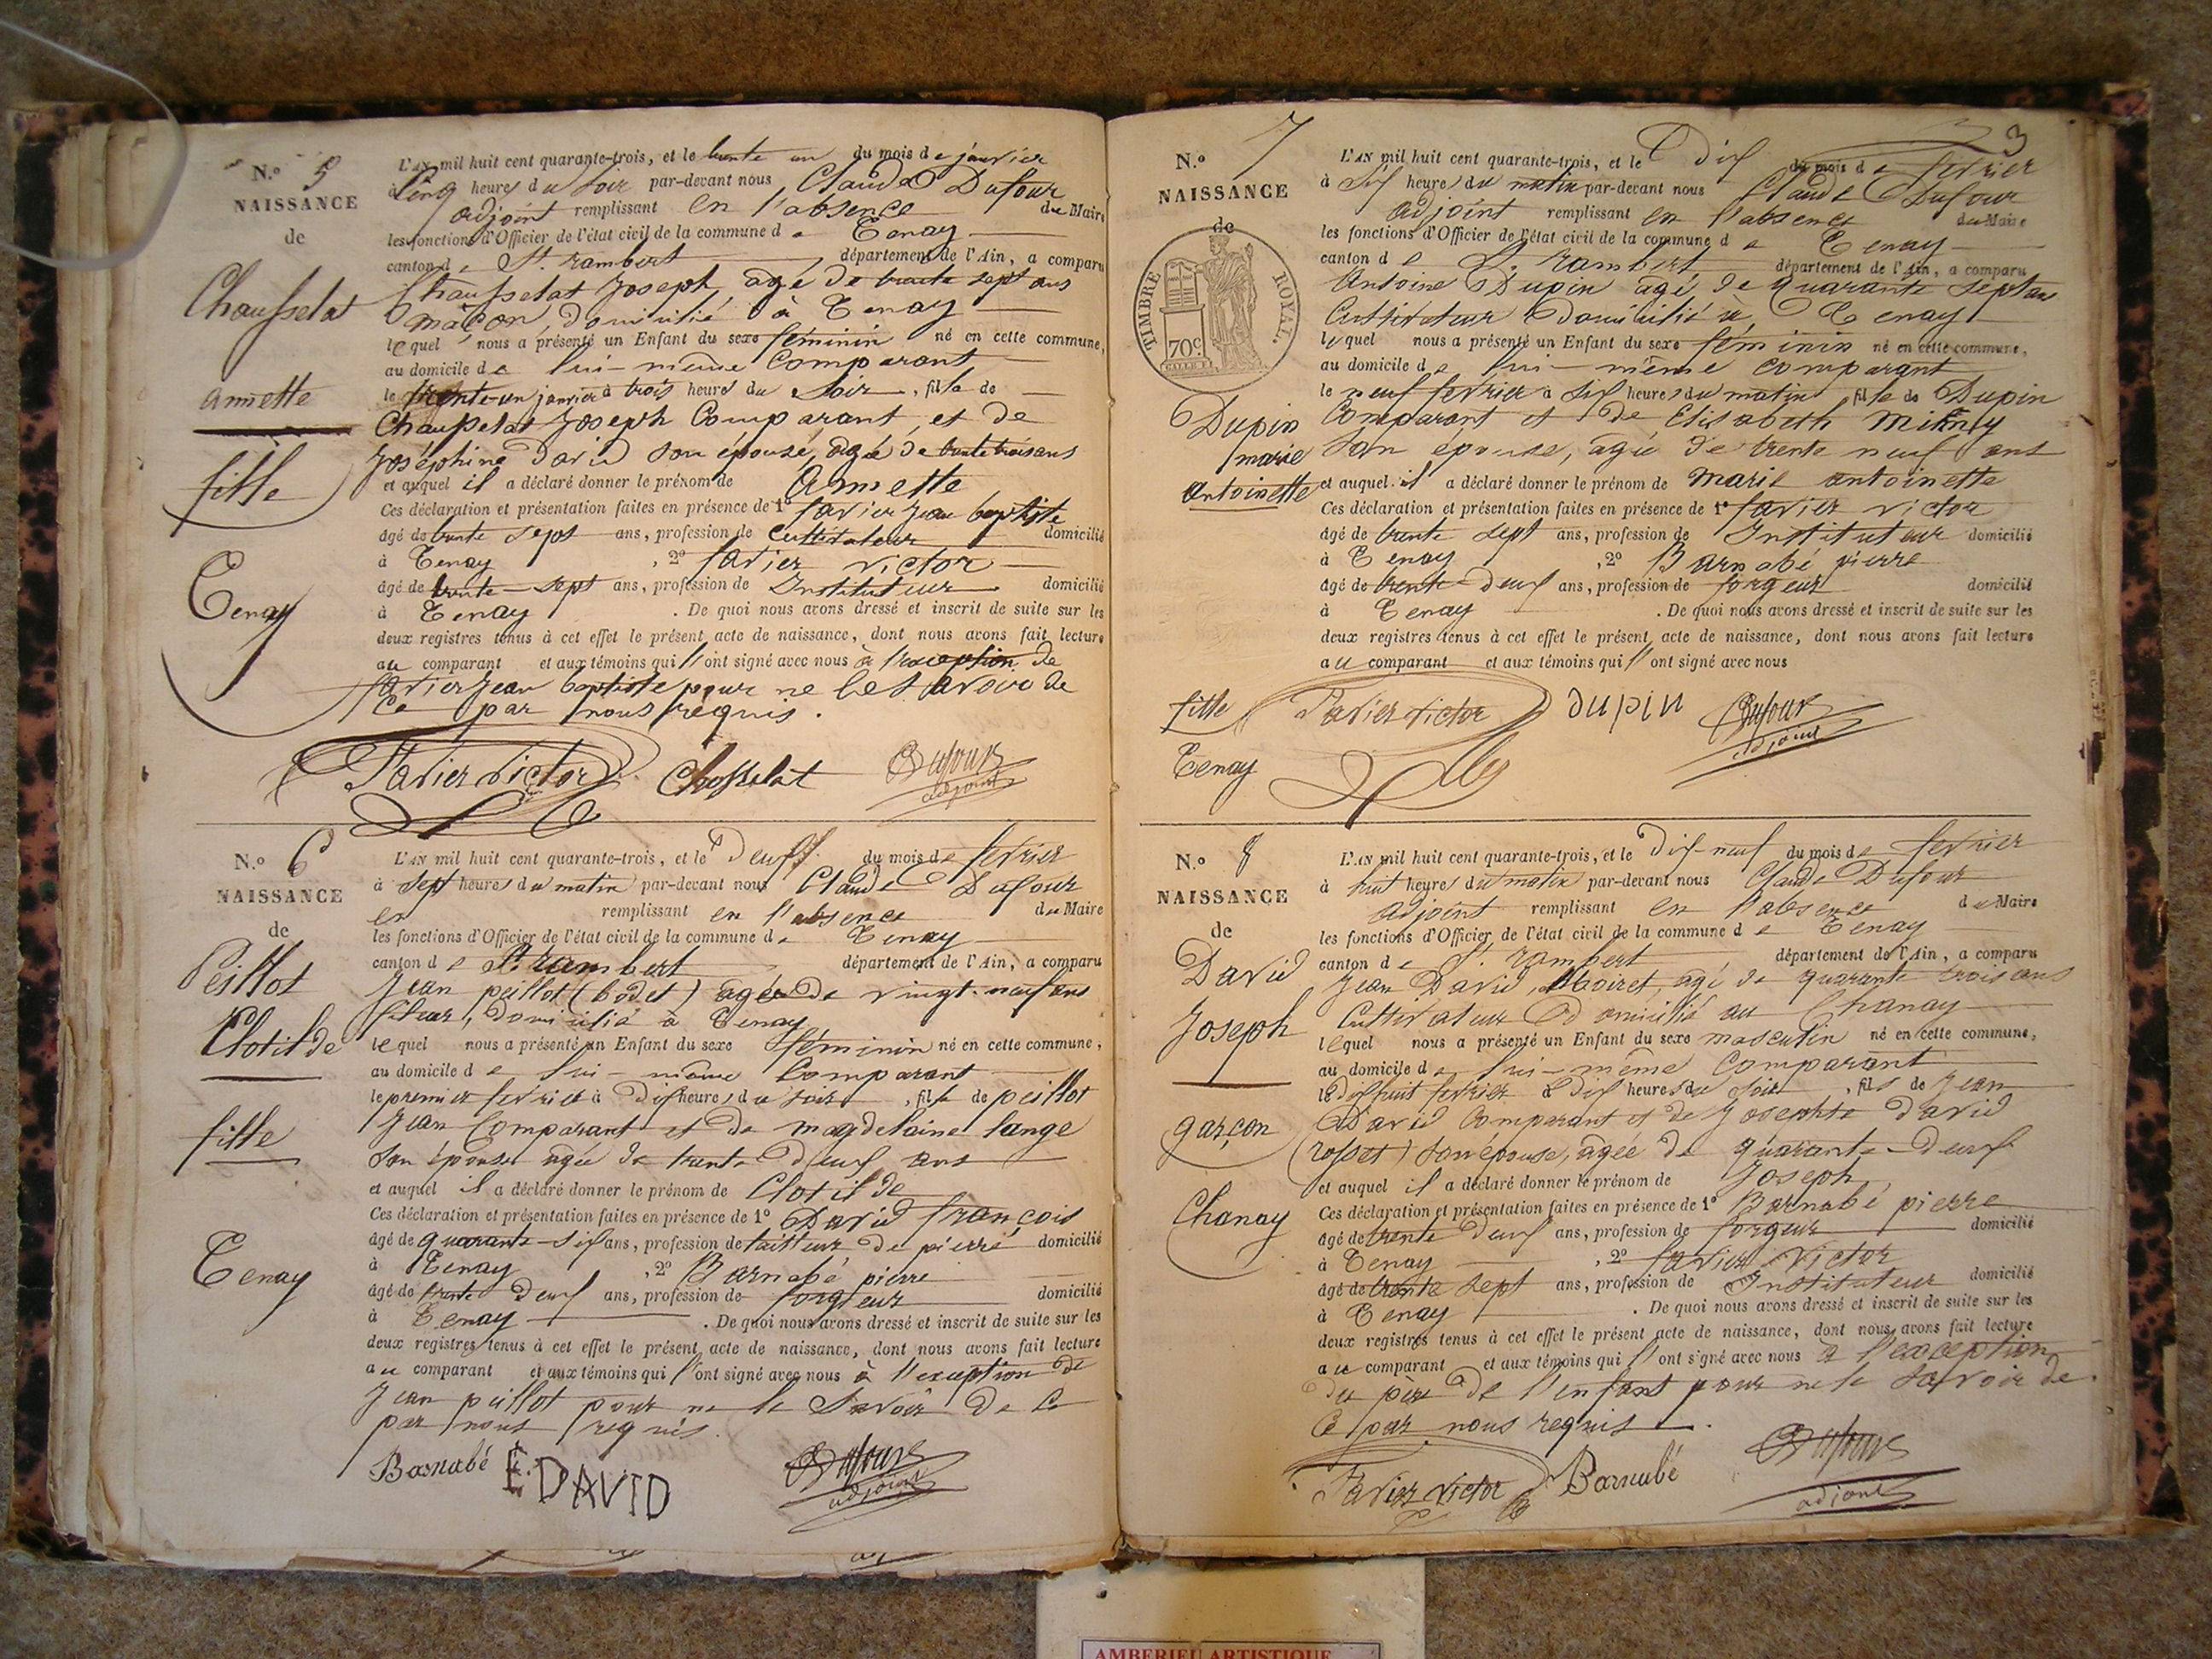 N.° 5
NAISSANCE
de
Chausselat
annette
fille
Tenay
L'AN mil huit cent quarante-trois, et le trente un du mois de janvier
à Cinq heures du soir par-devant nous Claude Dufour
adjoint remplissant en l'absence du Maire
les fonctions d'Officier de l'état civil de la commune de Tenay
canton de St. rambert département de l'Ain, a comparu
Chausselat Joseph, agé de trente sept ans
maçon, domicilié à Tenay
lequel nous a présenté un Enfant du sexe féminin né en cette commune,
au domicile de lui-même Comparant
le trente-un janvier à trois heures du soir, fille de
Chausselat Joseph Comparant, et de
Joséphine David son épouse, agée de trente trois ans
et auquel il a déclaré donner le prénom de Annette
Ces déclaration et présentation faites en présence de 1° favier jean baptiste
âgé de trente sept ans, profession de Cultivateur domicilié
à Tenay, 2° favier victor
âgé de trente-sept ans, profession de Instituteur domicilié
à Tenay. De quoi nous avons dressé et inscrit de suite sur les
deux registres tenus à cet effet le présent acte de naissance, dont nous avons fait lecture
au comparant et aux témoins qui l'ont signé avec nous à l'exception de
favier jean baptiste pour ne le savoir de
Ce par nous requis.
Favier Victor Chosselat Dufour
adjoint
N.° 6
NAISSANCE
de
Peillot
Clotilde
fille
Tenay
L'AN mil huit cent quarante-trois, et le Deux du mois de fevrier
à sept heures du matin par-devant nous Claude Dufour
en remplissant en l'absence du Maire
les fonctions d'Officier de l'état civil de la commune de Tenay
canton de St. rambert département de l'Ain, a comparu
Jean peillot (bodet) agée de vingt-neuf ans
fileur, domicilié à Tenay
lequel nous a présenté un Enfant du sexe féminin né en cette commune,
au domicile de lui-même Comparant
le premier fevrier à Dix heures du soir, fille de peillot
Jean Comparant et de magdelaine lange
son épouse agée de trente Deux ans
et auquel il a déclaré donner le prénom de Clotilde
Ces déclaration et présentation faites en présence de 1° David françois
âgé de quarante-six ans, profession de tailleur de pierre domicilié
à Tenay, 2° Barnabé pierre
âgé de trente Deux ans, profession de forgeur domicilié
à Tenay. De quoi nous avons dressé et inscrit de suite sur les
deux registres tenus à cet effet le présent acte de naissance, dont nous avons fait lecture
au comparant et aux témoins qui l'ont signé avec nous à l'exception de
Jean peillot pour ne le Savoir de Ce
par nous requis.
Barnabé F. DAVID Dufour
adjoint
3
N.° 7
NAISSANCE
de
TIMBRE ROYAL.
70c
Dupin
marie
antoinette
fille
Tenay
L'AN mil huit cent quarante-trois, et le Dix du mois de fevrier
à Six heures du matin par-devant nous Claude Dufour
adjoint remplissant en l'absence du Maire
les fonctions d'Officier de l'état civil de la commune de Tenay
canton de St. rambert département de l'Ain, a comparu
Antoine Dupin agé de quarante sept ans
Cultivateur Domicilié à Tenay
lequel nous a présenté un Enfant du sexe féminin né en cette commune,
au domicile de lui-même comparant
le neuf fevrier à Six heures du matin, fille de Dupin
Comparant et de Elisabeth
son épouse, agée de trente neuf ans
et auquel il a déclaré donner le prénom de marie antoinette
Ces déclaration et présentation faites en présence de 1° favier victor
âgé de trente sept ans, profession de Instituteur domicilié
à Tenay, 2° Barnabé pierre
âgé de trente-deux ans, profession de forgeur domicilié
à Tenay. De quoi nous avons dressé et inscrit de suite sur les
deux registres tenus à cet effet le présent acte de naissance, dont nous avons fait lecture
au comparant et aux témoins qui l'ont signé avec nous
Favier victor DUPIN Dufour
adjoint
N.° 8
NAISSANCE
de
David
Joseph
garçon
Chanay
L'AN mil huit cent quarante-trois, et le Dix-neuf du mois de fevrier
à huit heures du matin par-devant nous Claude Dufour
adjoint remplissant en l'absence du Maire
les fonctions d'Officier de l'état civil de la commune de Tenay
canton de St. rambert département de l'Ain, a comparu
Jean David, Moiret, agé de quarante trois ans
Cultivateur Domicilié au Chanay
lequel nous a présenté un Enfant du sexe masculin né en cette commune,
au domicile de lui-même Comparant
le dixhuit fevrier à Dix heures du soir, fils de Jean
David Comparant et de Josephte David
(rosset) son épouse, agée de quarante-Deux
et auquel il a déclaré donner le prénom de Joseph
Ces déclaration et présentation faites en présence de 1° Barnabé pierre
âgé de trente Deux ans, profession de forgeur domicilié
à Tenay, 2° favier Victor
âgé de trente sept ans, profession de Instituteur domicilié
à Tenay. De quoi nous avons dressé et inscrit de suite sur les
deux registres tenus à cet effet le présent acte de naissance, dont nous avons fait lecture
au comparant et aux témoins qui l'ont signé avec nous à l'exception
du père de l'enfant pour ne le savoir de
Ce par nous requis.
Favier victor Barnabé Dufour
adjoint
AMBERIEU ARTISTIQUE